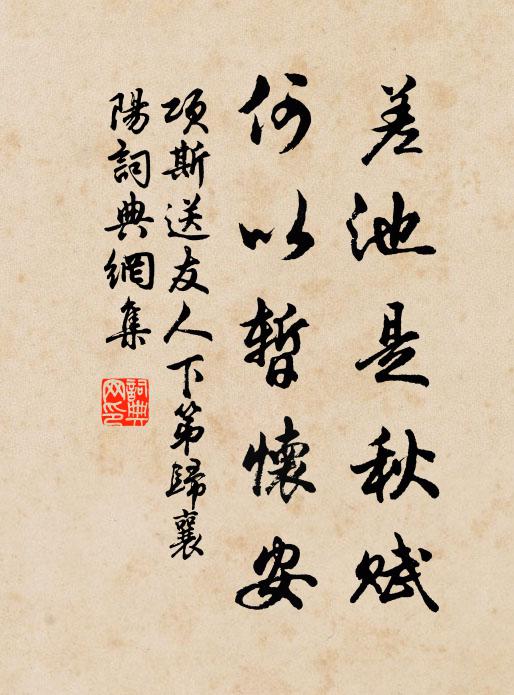 差池是秋賦
何以暫懷安
項斯送友人下第歸襄
陽詞典網集
詞典網印